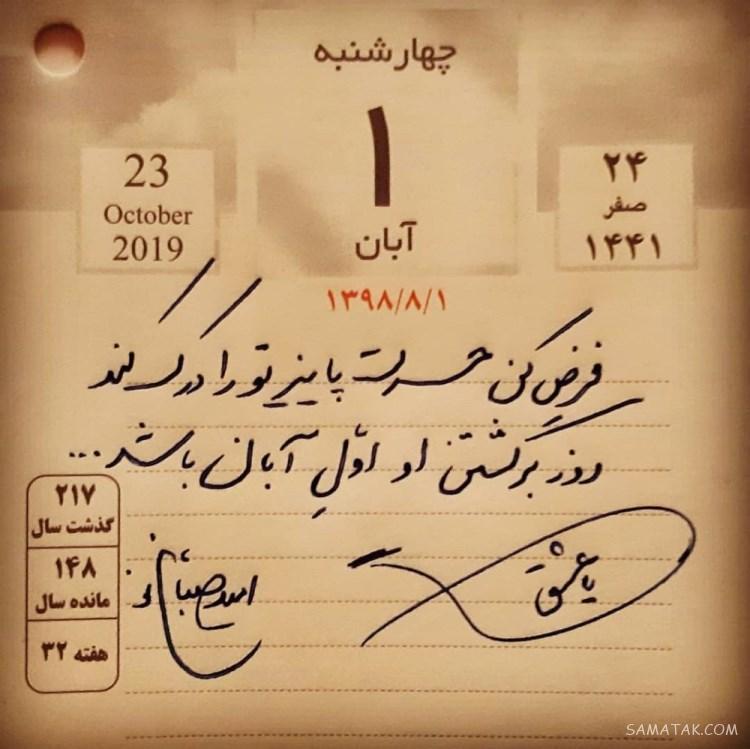 چهارشنبه
۱
آبان
23
October
2019
۲۴
صفر
۱۴۴۱
۱۳۹۸/۸/۱
فرضِ کن حسرت پاییزِ تو را درک کند
روز برگشتنِ او اوّلِ آبان باشد...
یا عشق
امید صباغ نو
۲۱۷
گذشت سال
۱۴۸
مانده سال
هفته ۳۲
SAMATAK.COM